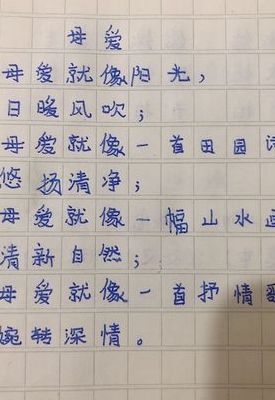 母爱
母爱就像阳光，
日暖风吹；
母爱就像一首田园
悠扬清净；
母爱就像一幅山水
清新自然；
母爱就像一首抒情
婉转深情。